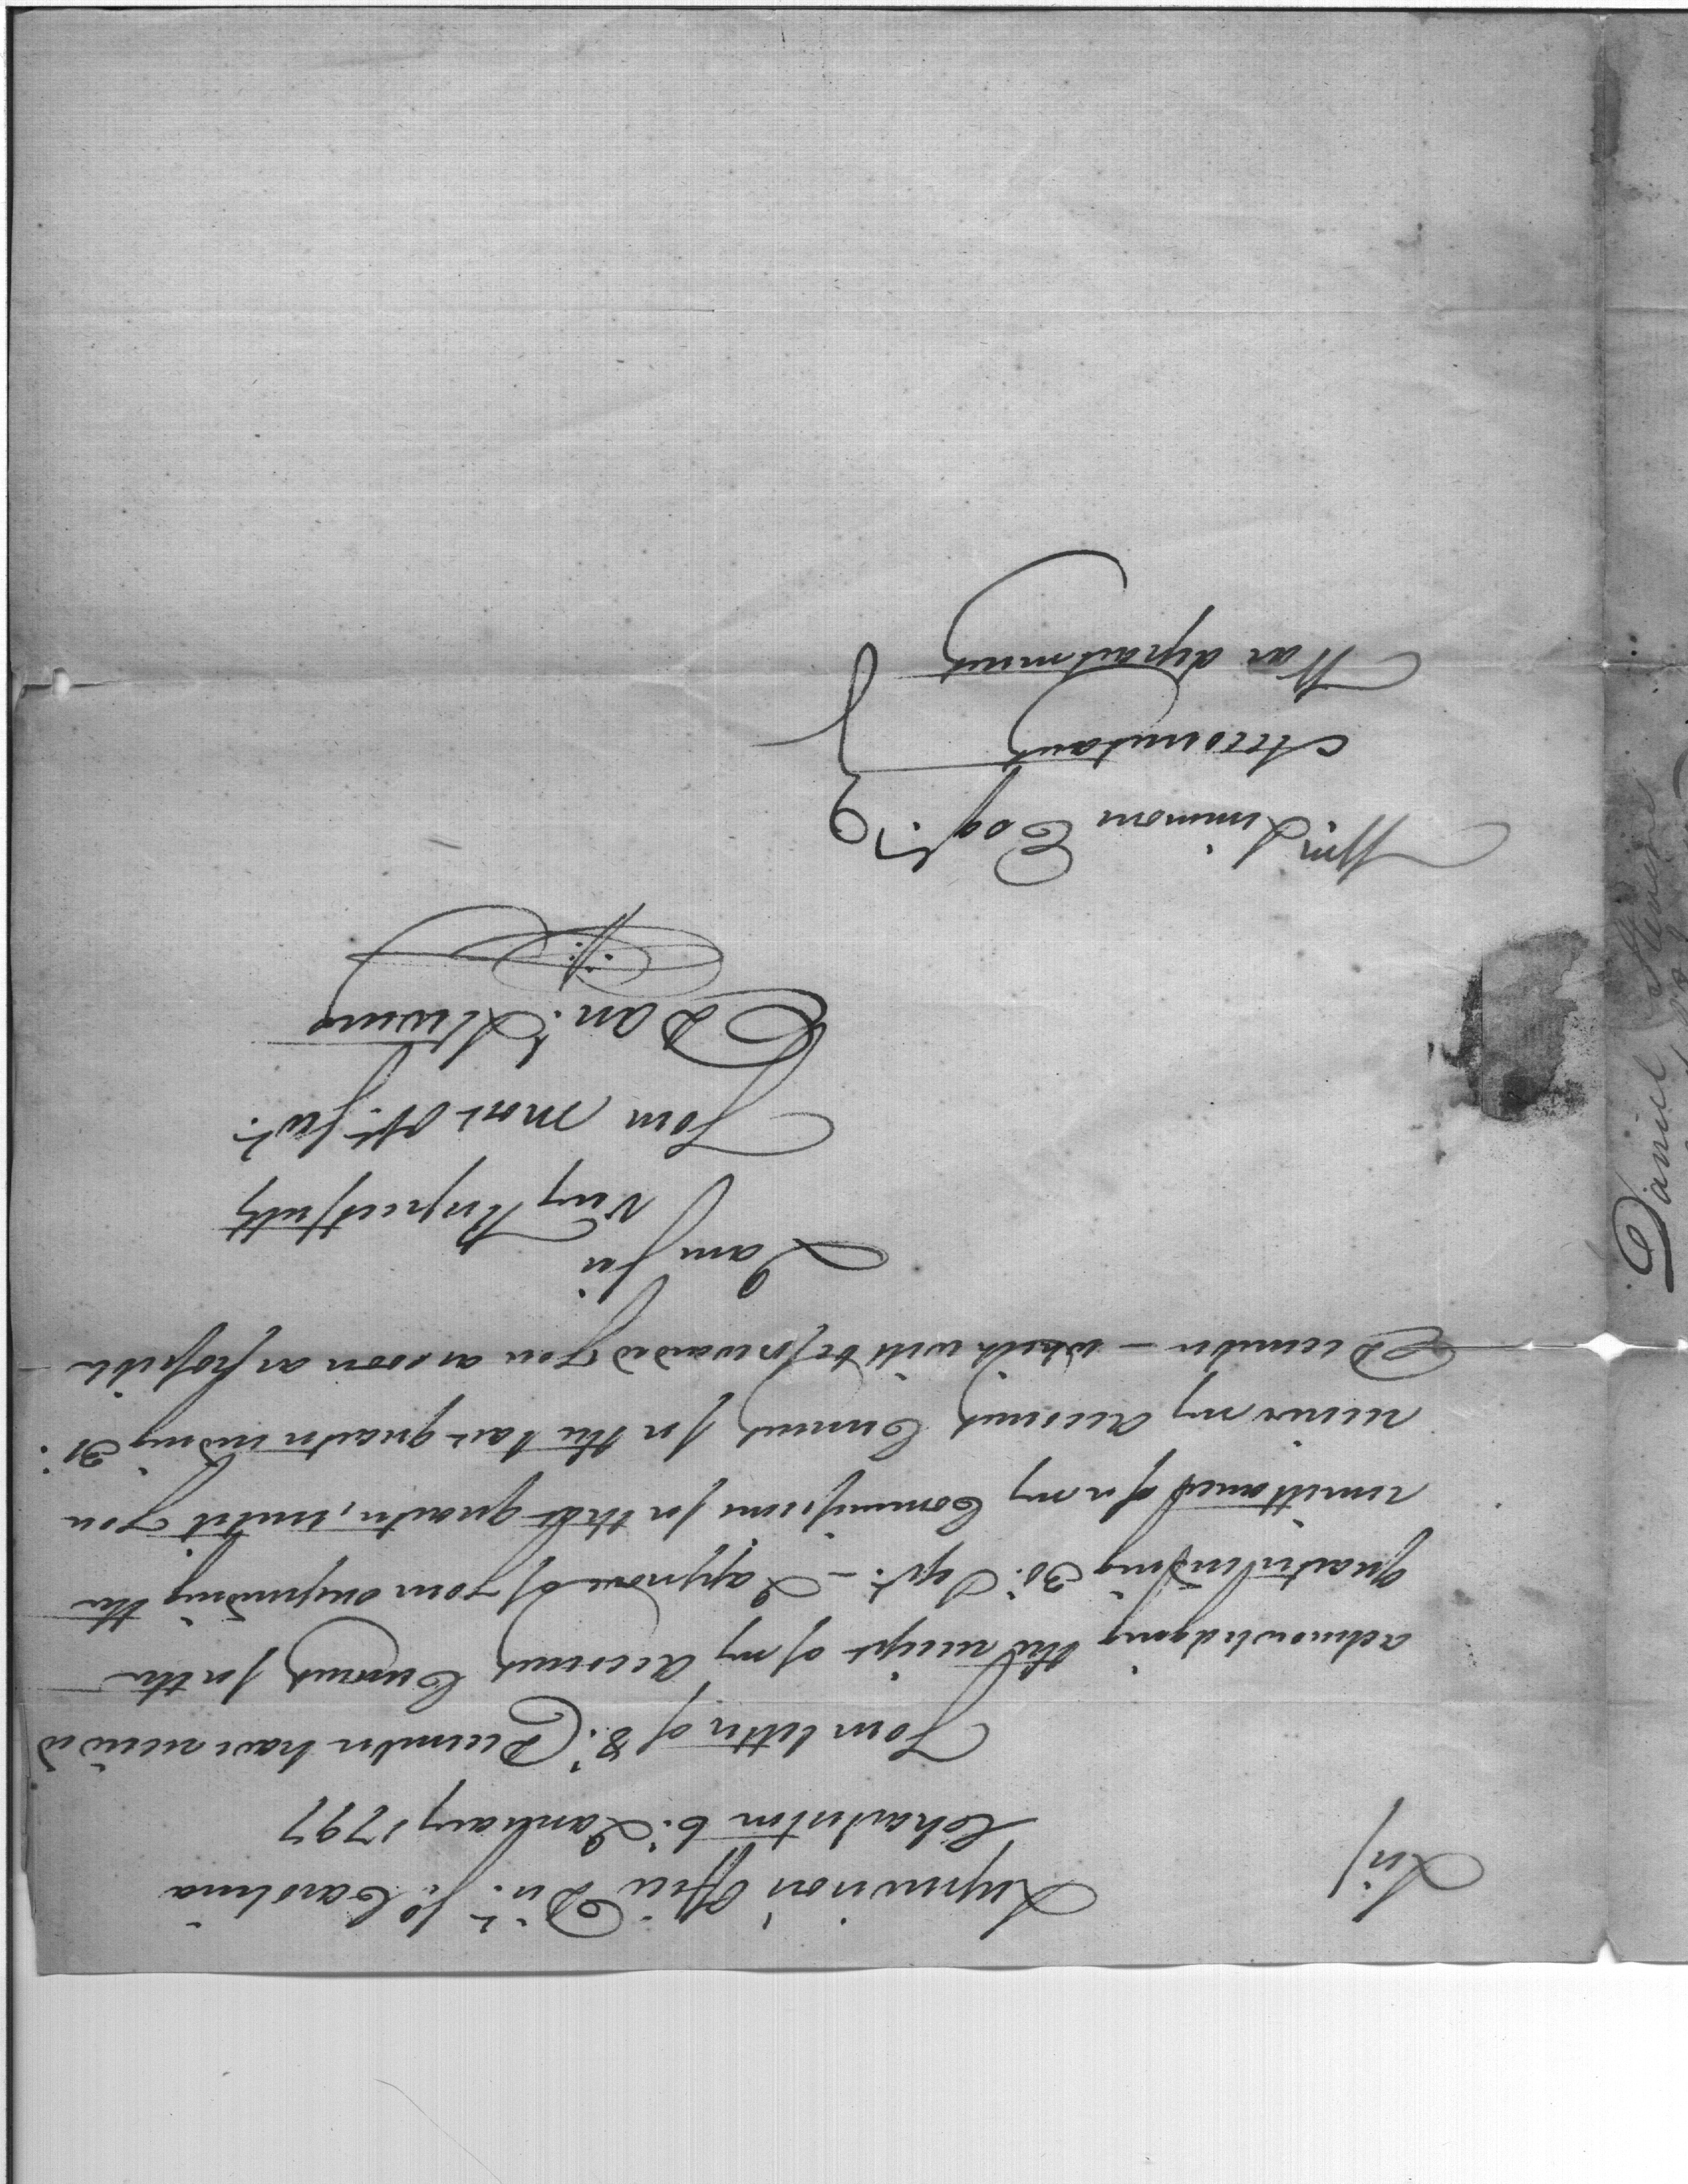 Supervisors Office Dist. So. Carolina
Charleston 6. January 1797
Sir/
Your letter of 8. December have received
acknowledging the receipt of my Account Current for the
quarter ending 30. Sept. - I approve of your suspending the
remittance for my Commissions for that quarter, until you
receive my Account Current for the last quarter ending 31.
December - which will be forwarded you as soon as possible -
I am sir
Very Respectfully
Your most Ob. Servt.
Danl. Stevens
Wm. Simmons Esqr.
Accountant
War department
Daniel Stevens